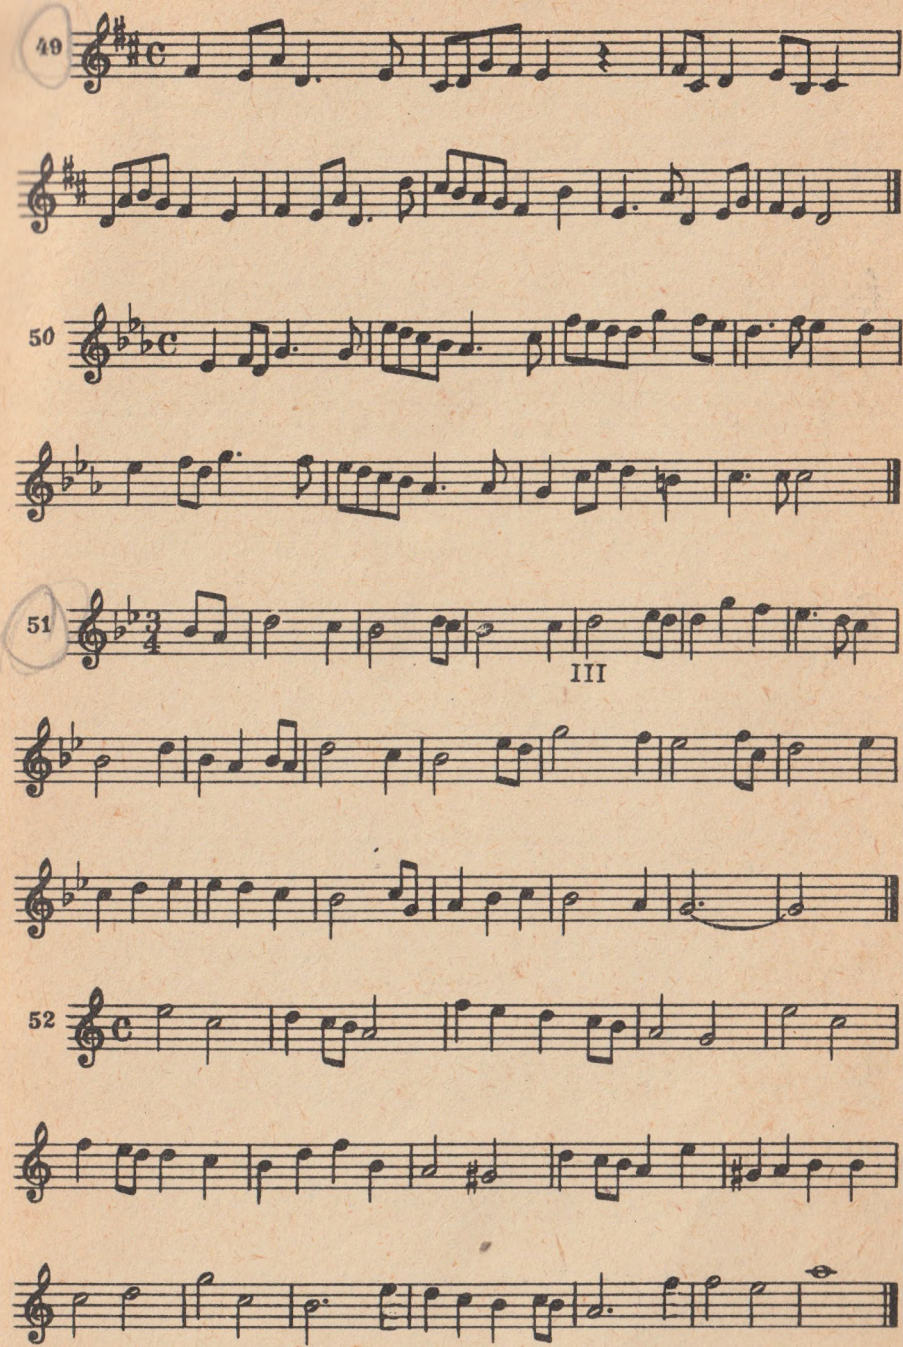 49
50
51
3
4
III
52